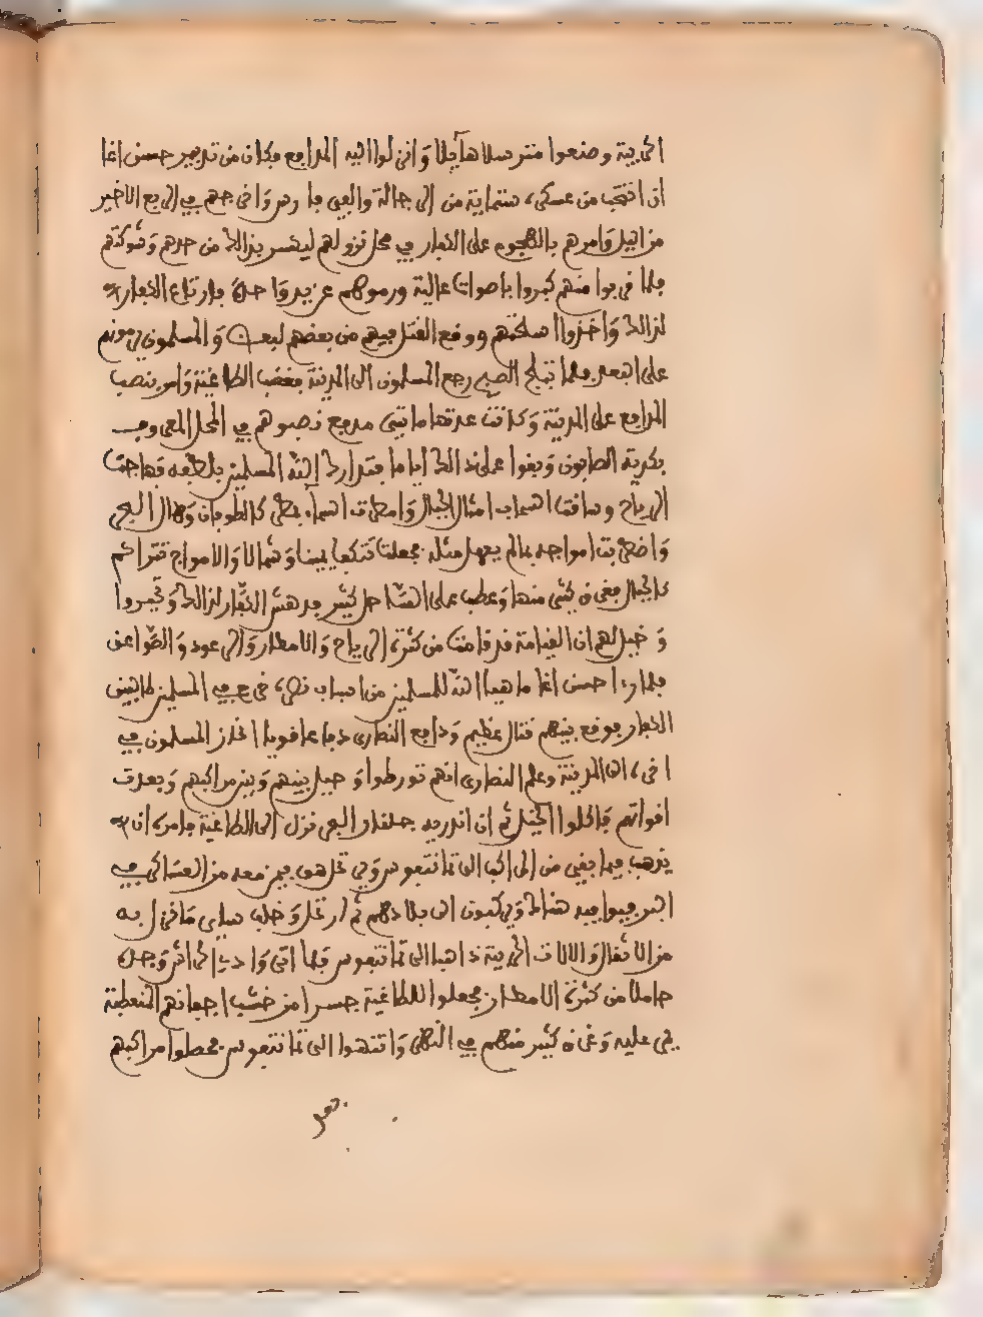 الحربية وصنعوا مترسا هايلا وانزلوا اليه المدابع فكان من تدبير حسن اغا
ان انتخب من عسكره ستماية من الرجالة والفى فارس واخرجهم في الربع الاخير
من اليل وامرهم بالهجوم على الكفار في محل نزولهم ليكسر بذالك من حدهم وشوكتهم
فلما قربوا منهم كبروا باصوات عالية ورموهم عن يد واحدة فارتاع الكفار
لذالك واخذوا اسلحتهم ووقع القتل فيهم من بعضهم لبعض والمسلمون يرمونهم
على البعد فلما تبلج الصبح رجع المسلمون الى المدينة فغضب الطاغية وامر بنصب
المدابع على المدينة وكانت عدتها مايتى مدفع نصبوهم في المحل المعروف
بكدية الصابون وبقوا على ذالك اياما فتدارك الله المسلمين بلطفه فهاجت
الرياح وساقت السحاب امثال الجبال وامطرت السماء بمطر كالطوفان وهال البحر
واضطربت امواجه بما لم يعهل مثله فجعلت تتكفا يمينا وشمالا والامواج تتراكم
كالجبال فغرق كثير منها وعطب على الساحل كثير فدهش الكفار لذالك وتحيروا
وخيل لهم ان القيامة قد قامت من كثرة الرياح والامطار والرعود والصواعق
فلما رءا حسن اغا ما هيا الله للمسلمين من اسباب نصره خرج في المسلمين طالبين
الكفار فوقع بينهم قتال عظيم ودافع النصارى دفاعا قويا انحاز المسلمون فيه
اخره الى المدينة وعلم النصارى انهم تورطوا وحيل بينهم وبين مراكبهم وبعدت
اقواتهم فاكلوا الخيل ثم ان اندريه جلفدار البحر نزل الى الطاغية فامره ان
يذهب فيما بقى من المراكب الى تمانتفوس وبرتحل هو فيمن معه من العساكر في
البر فيوافيه هناك ويركبون الى بلادهم ثم ارتحل وخلف ساير ما نزل به
من الاثقال والالات الحربية ذاهبا الى تمانتفوس فلما اتى وادى الحراش وجده
حاملا من كثرة الامطار فجعلوا للطاغية جسرا من خشب اجفانهم المتعطبة
فمر عليه وغرق كثير منهم في النهر وانتهوا الى تمانتفوس فحطوا مراكبهم